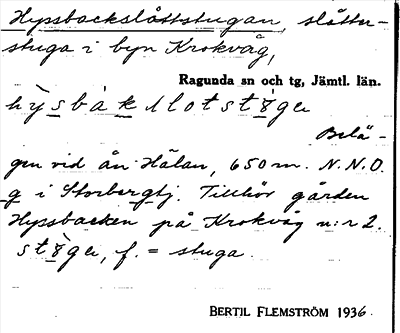 Hyssbackslåttstugan, slåtter-
stuga i byn Krokvåg,
Ragunda sn och tg, Jämtl. län.
Belä-
gen vid ån Hälan, 650 m. N.N.O.
i Storbergtj. Tillhör gården
Hyssbacken på Krokvåg n:r 2.
f. = stuga.
BERTIL FLEMSTRÖM 1936.